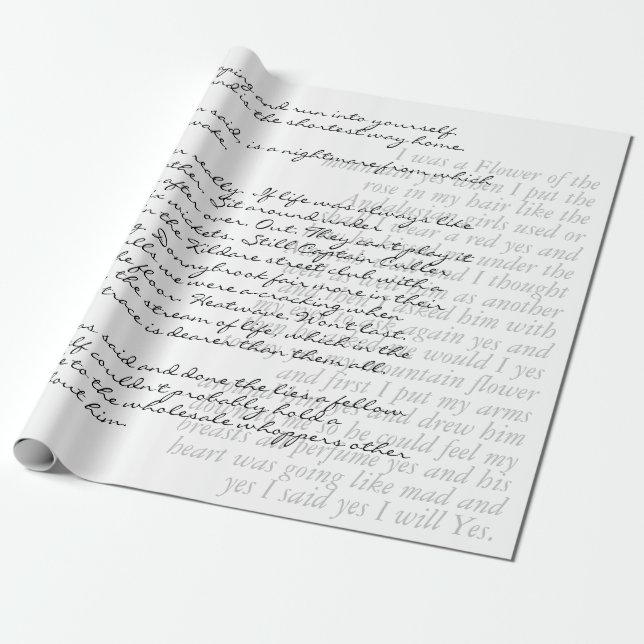 ping and run into yourself.
und is the shortest way home.
n said, is a nightmare from which
wake.
r really. If life was always like
ther. Sit around under
after over. Out. They can't play it
ix wickets. Still Captain Culler
Kildare street club with a
Donnybrook fair more in their
we were a cracking when
the floor. Heatwave. Won't last.
stream of life, which in the
trace is dearer than them all.
as said and done the lies a fellow
lf couldn't probably hold a
e to the wholesale whoppers other
out him.
I was a Flower of the
mountain yes when I put the
rose in my hair like the
Andalusian girls used or
shall I wear a red yes and
under the
and I thought
as another
and then I asked him with
my eyes to ask again yes and
then he asked me would I yes
my mountain flower
and first I put my arms
yes and drew him
down to me so he could feel my
breasts all perfume yes and his
heart was going like mad and
yes I said yes I will Yes.